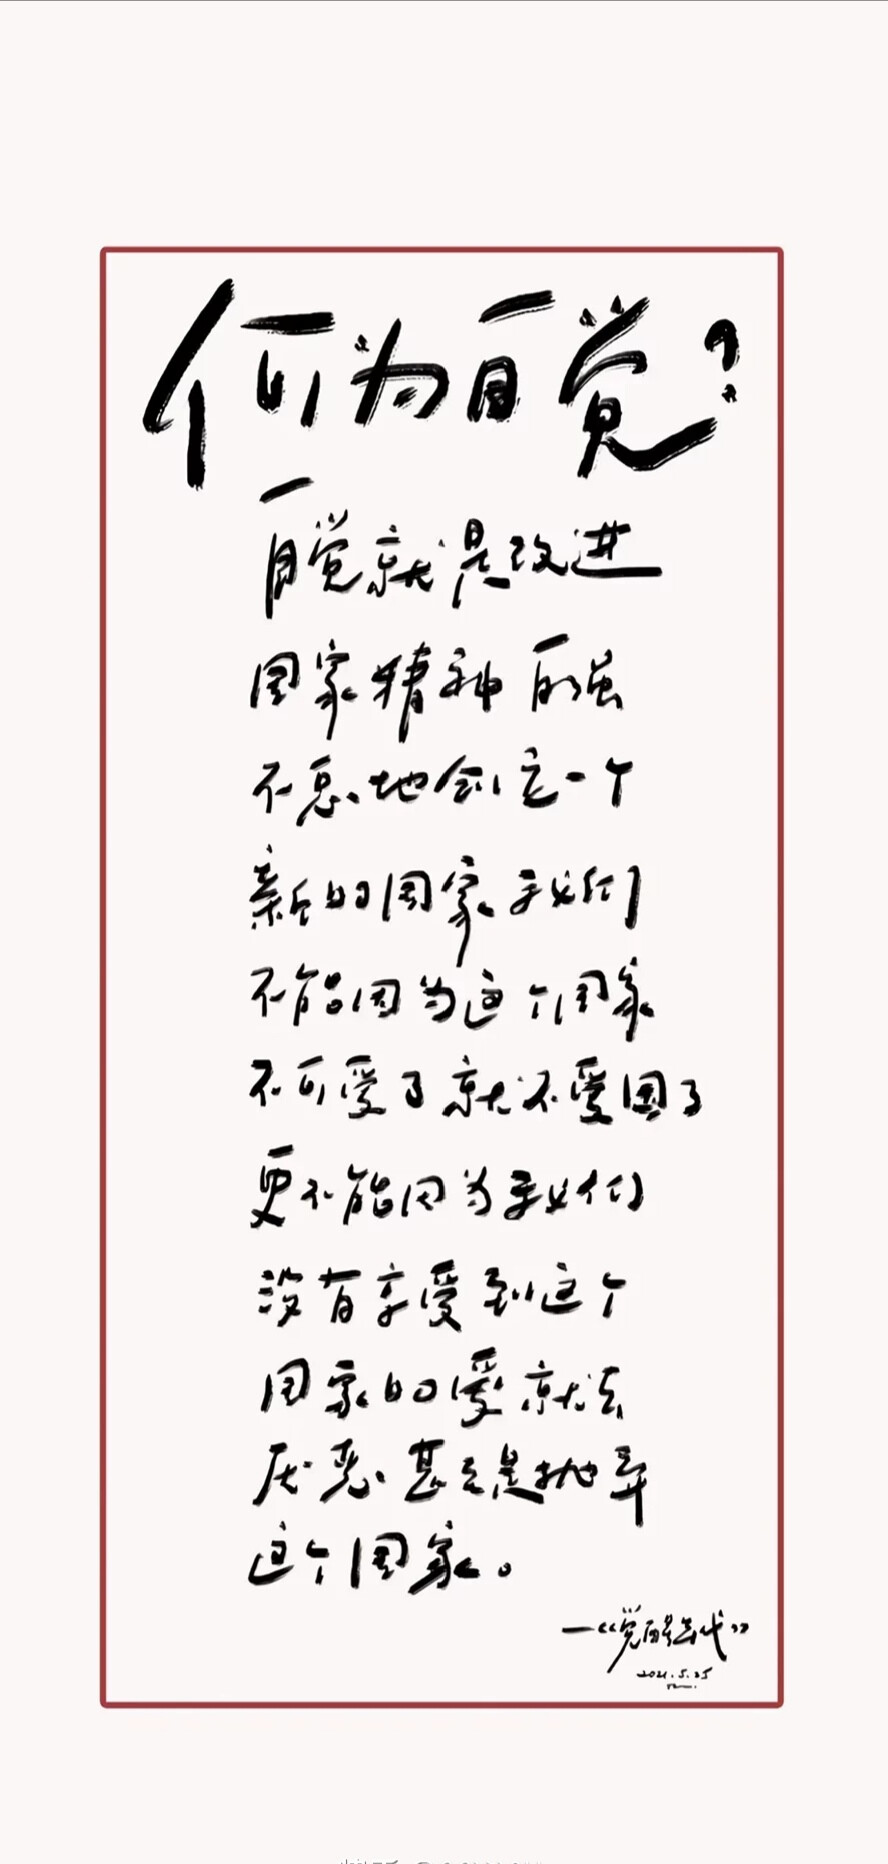 何为自觉?
自觉就是改进
国家精神而虽
不怠地创立一个
新的国家我们
不能因为这个国家
不可爱了就不爱国了
更不能因为我们
没有享受到这个
国家的爱就去
厌恶甚至是抛弃
这个国家。
—《觉醒年代》
2021.5.25